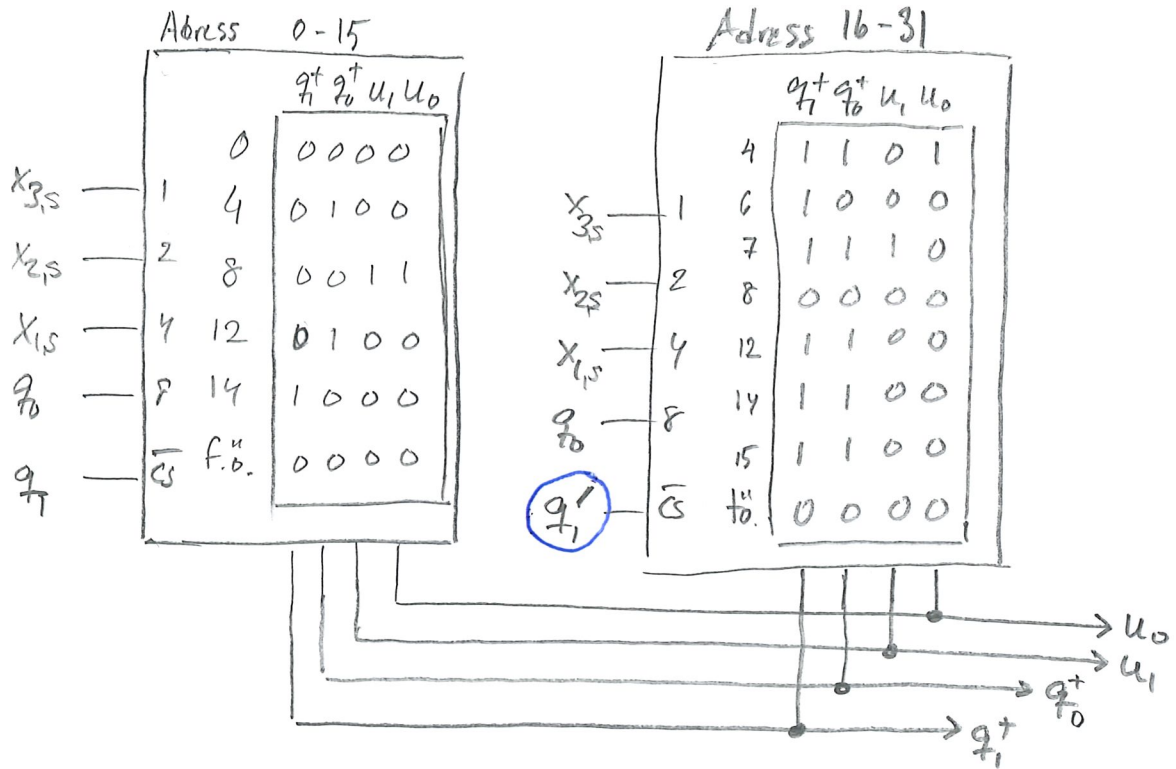 Adress 0-15
q₁⁺ q₀⁺ u₁ u₀
0 0 0 0 0
4 0 1 0 0
8 0 0 1 1
12 0 1 0 0
14 1 0 0 0
f.ö. 0 0 0 0
x₃,s 1
x₂,s 2
x₁,s 4
q₀ 8
q₁ C̅S̅
Adress 16-31
q₁⁺ q₀⁺ u₁ u₀
4 1 1 0 1
6 1 0 0 0
7 1 1 1 0
8 0 0 0 0
12 1 1 0 0
14 1 1 0 0
15 1 1 0 0
fö. 0 0 0 0
x₃s 1
x₂s 2
x₁,s 4
q₀ 8
q₁' C̅S̅
u₀
u₁
q₀⁺
q₁⁺